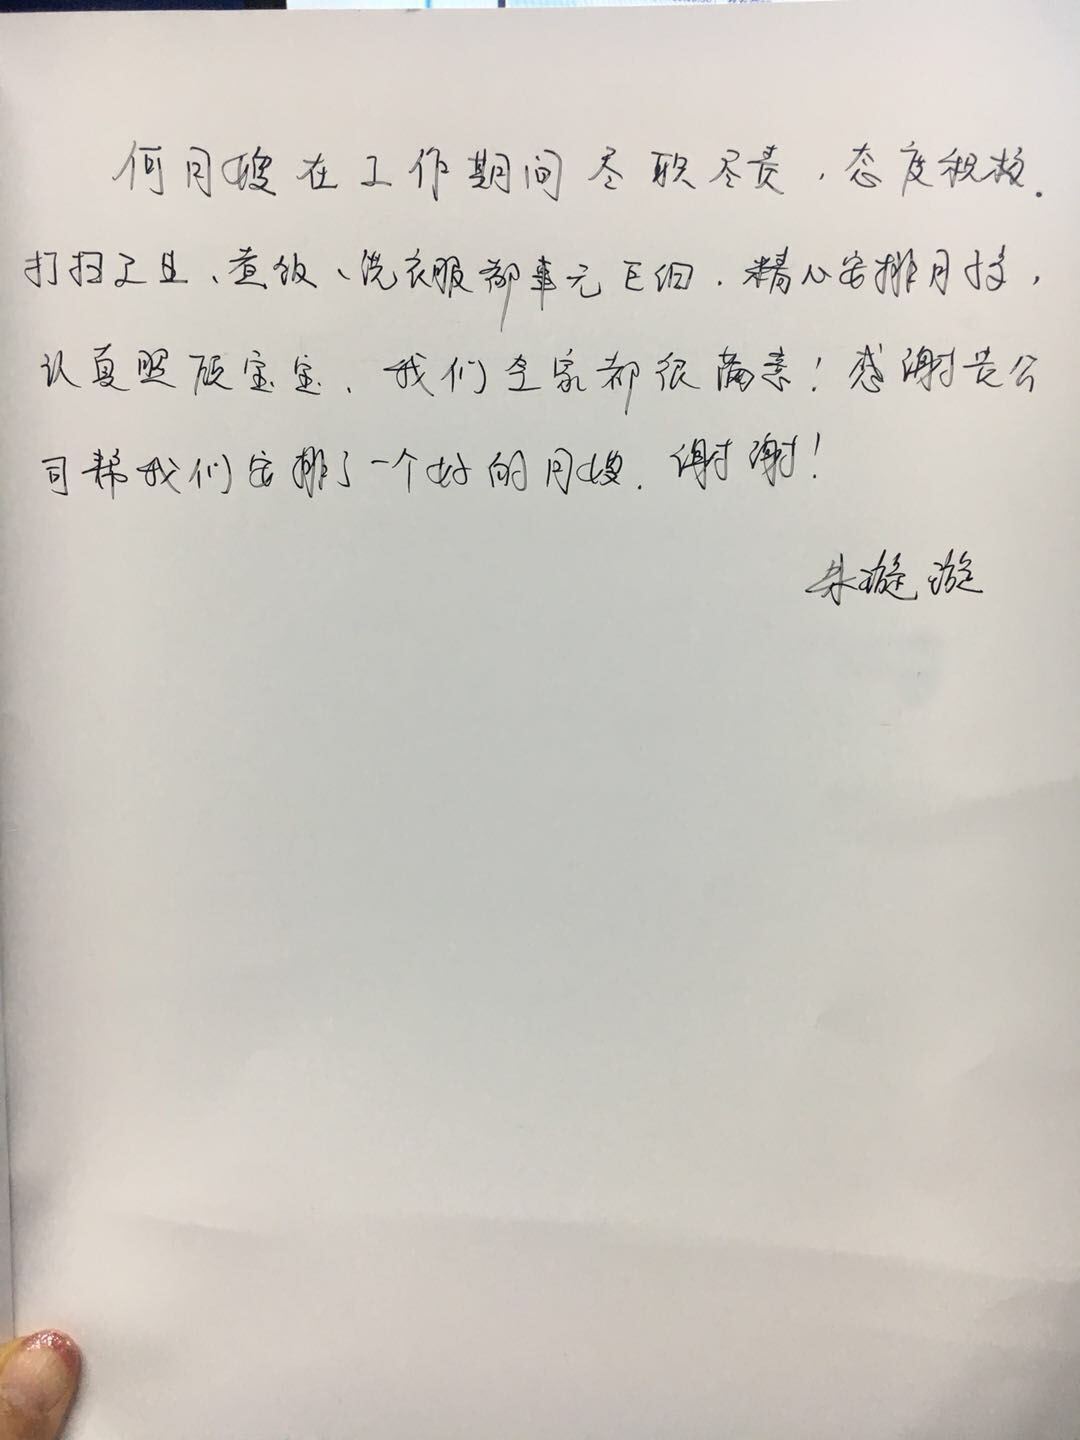 何月嫂在工作期间尽职尽责，态度积极.
打扫卫生、煮饭、洗衣服都事无巨细.精心安排月孩，
认真照顾宝宝.我们全家都很满意！感谢贵公
司帮我们安排了一个好的月嫂.谢谢！
朱漩漩